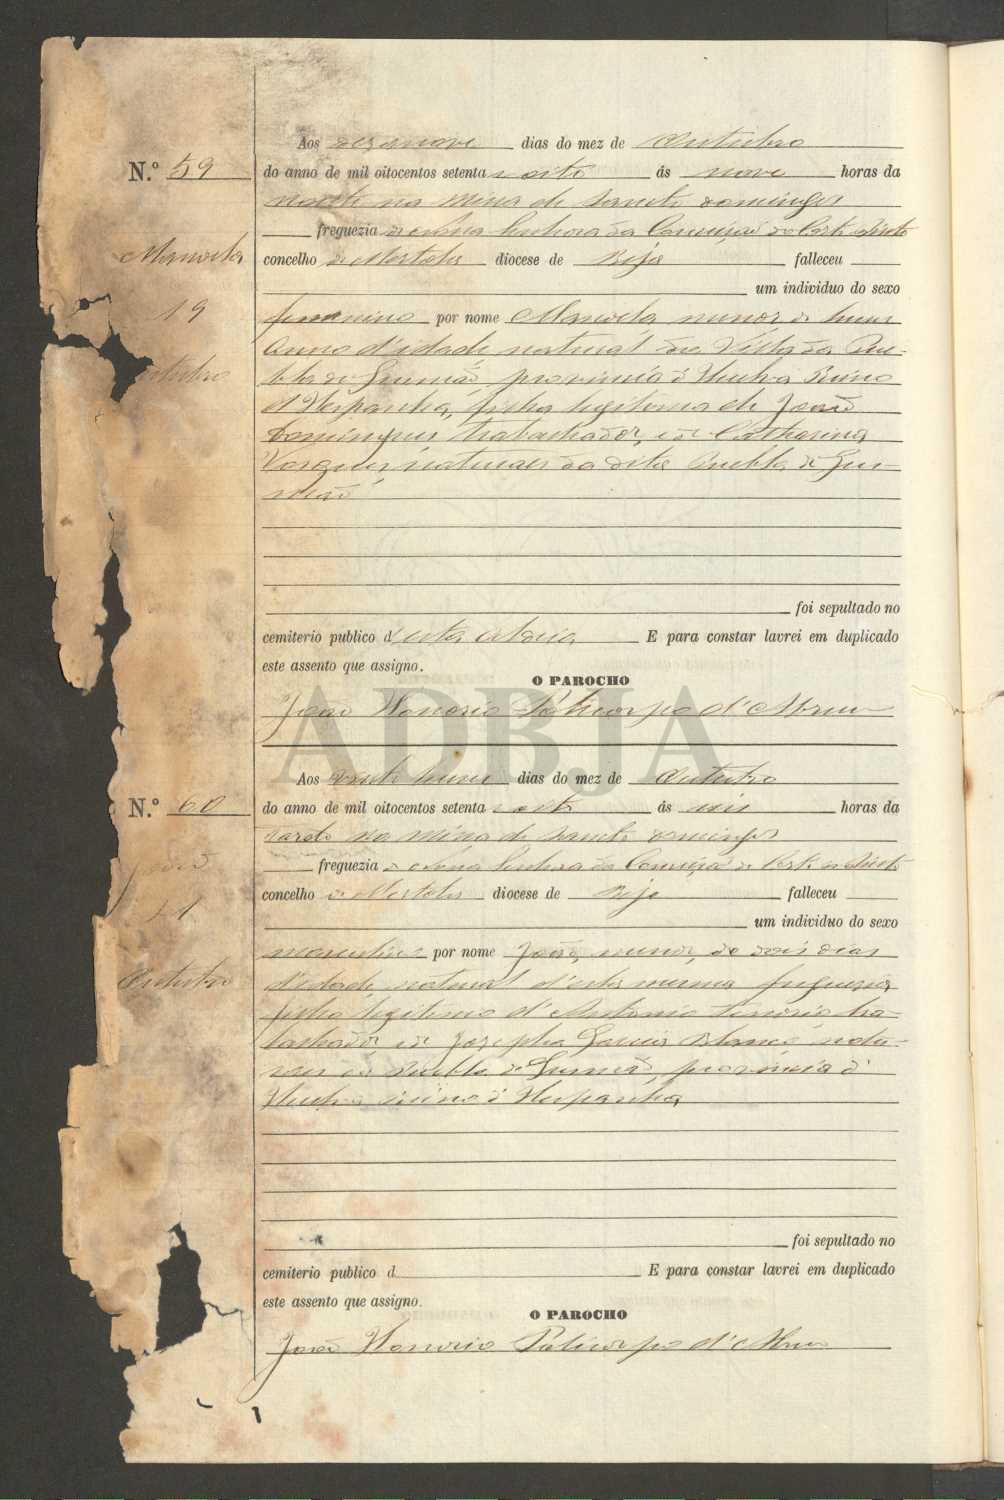 Aos dezanove dias do mez de Outubro
N.º 59
do anno de mil oitocentos setenta e oito ás nove horas da
noute na Mina de Sancto Domingos
freguezia de Nossa Senhora da Conceição de Corte do Pinto
Manoela
concelho de Mertola diocese de Beja falleceu
um individuo do sexo
19
feminino por nome Manoela menor de hum
anno d'idade natural da Villa da Pue-
Outubro
bla de Gusmão, provincia d'Huelva Reino
d'Hespanha, filha legitima de João
Domingues trabalhador, e de Catharina
Vasques naturaes da dita Puebla de Gus-
mão
foi sepultado no
cemiterio publico d'esta aldeia E para constar lavrei em duplicado
este assento que assigno.
O PAROCHO
João Honorio Policarpo d'Abreu
ADBJA
Aos vinte hum dias do mez de Outubro
N.º 60
do anno de mil oitocentos setenta e oito ás seis horas da
tarde na Mina de Sancto Domingos
João
freguezia de Nossa Senhora da Conceição de Corte do Pinto
concelho de Mertola diocese de Beja falleceu
21
um individuo do sexo
masculino por nome João, menor, de dois dias
Outubro
d'idade natural d'esta mesma freguezia
filho legitimo d'Antonio Tenorio tra-
balhador e de Josepha Garcia Blanco natu-
raes da Puebla de Gusmão, provincia d'
Huelva reino d'Hespanha
foi sepultado no
cemiterio publico d E para constar lavrei em duplicado
este assento que assigno.
O PAROCHO
João Honorio Policarpo d'Abreu